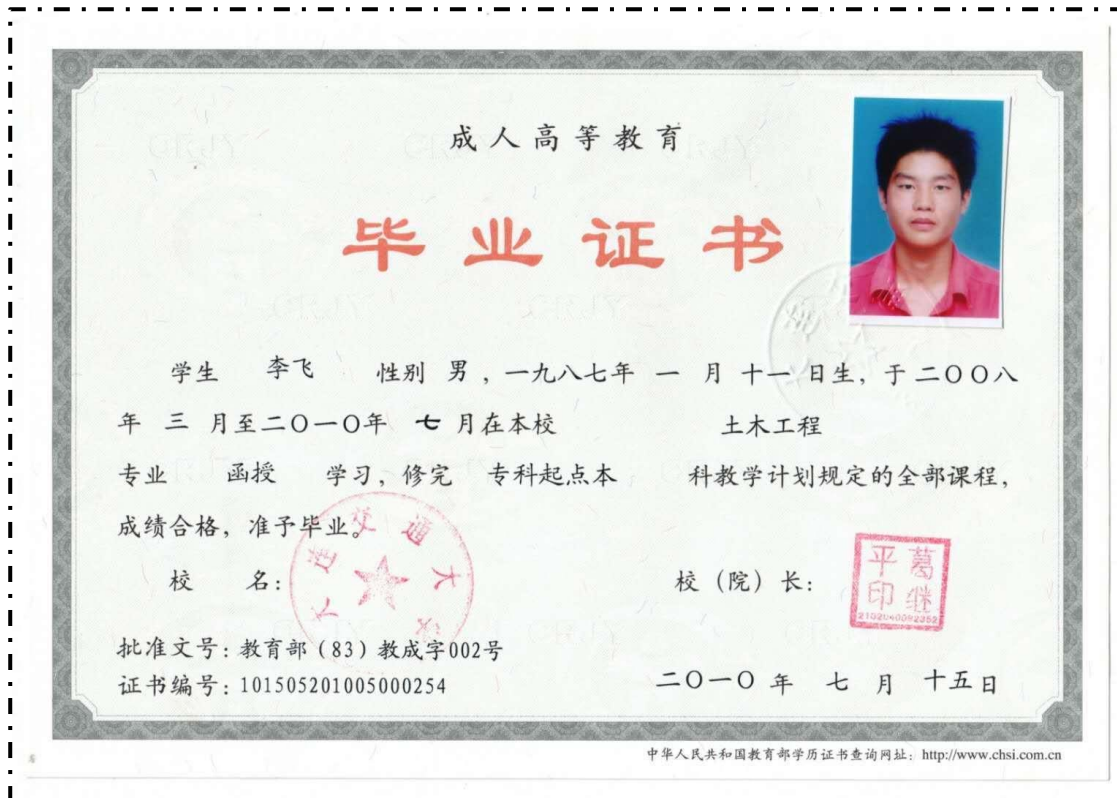 成人高等教育
毕业证书
学生 李飞 性别 男，一九八七年 一 月 十一 日生，于二〇〇八
年 三 月至二〇一〇年 七 月在本校 土木工程
专业 函授 学习，修完 专科起点本 科教学计划规定的全部课程，
成绩合格，准予毕业。
大连交通大学
校 名：
校（院）长：
葛继平印
2102040092352
批准文号：教育部（83）教成字002号
证书编号：101505201005000254
二〇一〇 年 七 月 十五日
中华人民共和国教育部学历证书查询网址：http://www.chsi.com.cn